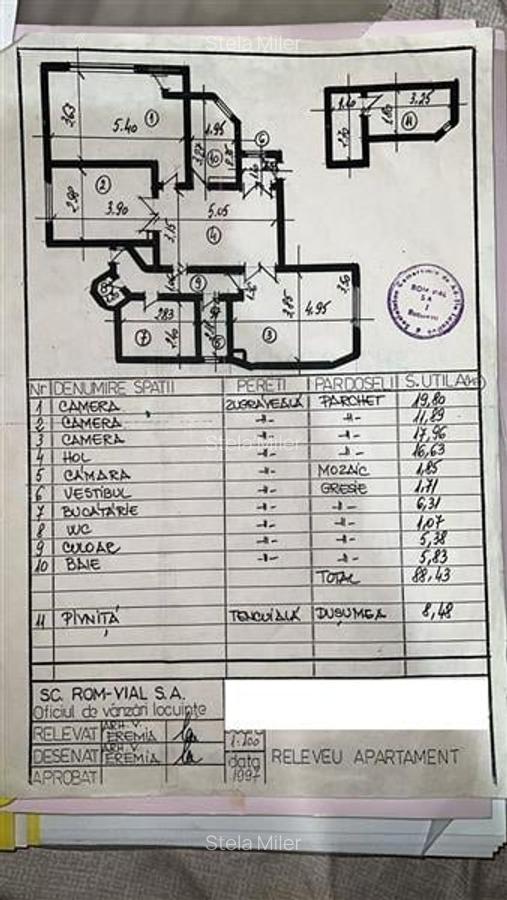 Stela Miler
3,63
5.40
1
1,95
10
6
1.10
3,25
11
2
2,98
3.90
5.05
3,15
4
9
8
7
2,83
3
4,95
ROM-VIAL
SA
1
București
Nr DENUMIRE SPATII PERETI PARDOSELI S.UTILA
1 CAMERA ZUGRĂVEALĂ PARCHET 19,80
2 CAMERA -||- -||- 11,89
3 CAMERA -||- -||- 17,96
4 HOL -||- -||- 16,63
Stela Miler
5 CĂMARA -||- MOZAIC 1,85
6 VESTIBUL -||- GRESIE 1,71
7 BUCĂTĂRIE -||- -||- 6,31
8 WC -||- -||- 1,07
9 CULOAR -||- -||- 5,38
10 BAIE -||- -||- 5,83
TOTAL 88,43
11 PIVNIȚĂ TENCUIALĂ DUȘUMEA 8,48
SC. ROM-VIAL S.A.
Oficiul de vânzări locuințe
RELEVAT ARH. V. EREMIA
1:100
DESENAT ARH. V. EREMIA
data
1997
RELEVEU APARTAMENT
APROBAT
Stela Miler